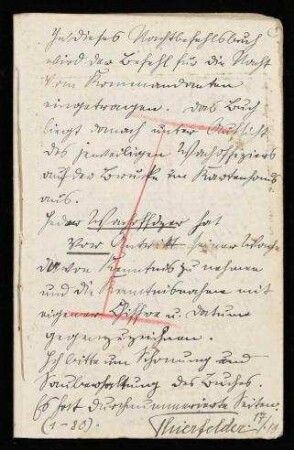 In dieses Nachtbefehlsbuch
wird der Befehl für die Nacht
vom Kommandanten
eingetragen. Das Buch
liegt danach unter Aufsicht
des jeweiligen Wachoffiziers
auf der Brücke im Kartenhaus
aus.
Jeder Wachoffizier hat
vor Antritt seiner Wache
davon Kenntnis zu nehmen
und die Kenntnisnahme mit
eigener Chiffre u. Datum
gegenzuzeichnen.
Ich bitte um Schonung und
Sauberhaltung des Buches.
Es hat durchnummerierte Seiten.
(1-80). Thierfelder.